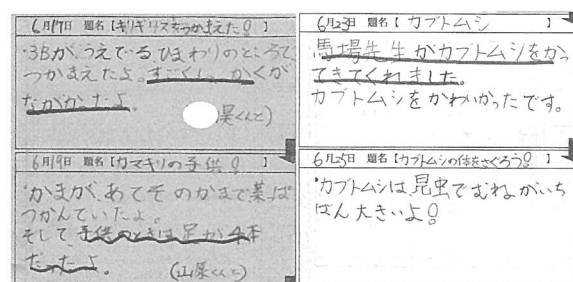 6月17日 題名【キリギリスをつかまえた!】
・3Bが、うえている、ひまわりのところで、
つかまえたよ。すごくしょかくが
ながかったよ。
昊くんと)
6月19日 題名【カマキリの子供!】
・かまが、あてそのかまで葉っぱ
つかんていたよ。
そして、子供のときは足が4本
だったよ。
(山原くんと)
6月23日 題名【カブトムシ】
馬場先生がカブトムシをかっ
てきてくれました。
カブトムシをかわいかったです。
6月25日 題名【カブトムシの体をさぐろう!】
・カブトムシは昆虫でむねがいち
ばん大きいよ!